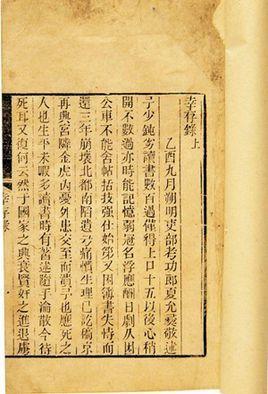 幸存錄 上
乙酉九月朔明吏部考功郎夏允彝敬述
予少鈍劣讀書數百過僅得上口十五以後心稍
開不數過亦時能記憶弱冠名浮應酬日劇从困
公車不能舍帖括技强仕始第又困簿書失恃而
還三年崩壞北都南陷遺弓痛憤生理已訖京
再興宮隣金虎內憂外患交至而潰予也應死之
人也生平未暇多讀書時有著述隨手淪散今待
死耳又復何云然于國家之興衰賢奸之進退虜
幸存錄